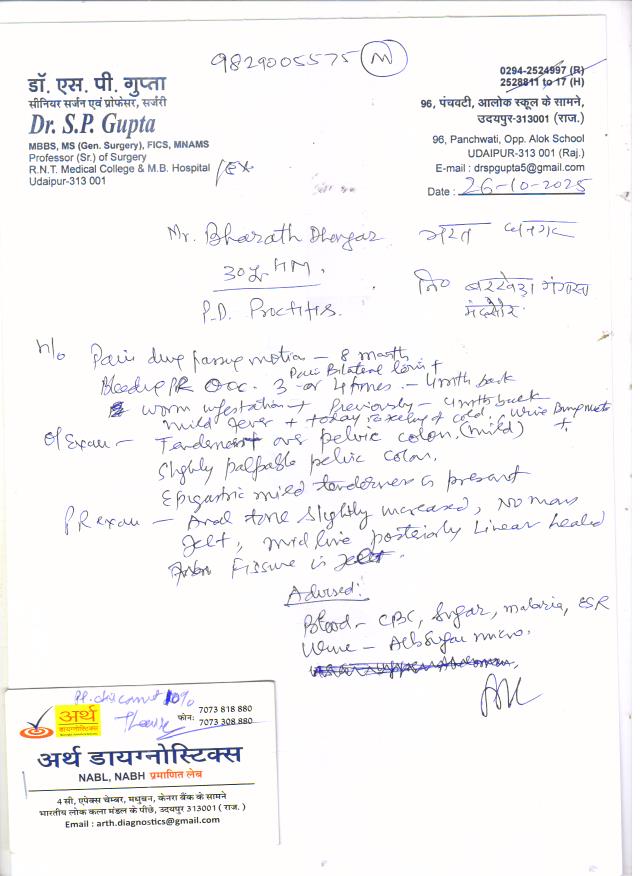 9829005575 (M)
डॉ. एस. पी. गुप्ता
सीनियर सर्जन एवं प्रोफेसर, सर्जरी
Dr. S.P. Gupta
MBBS, MS (Gen. Surgery), FICS, MNAMS
Professor (Sr.) of Surgery
R.N.T. Medical College & M.B. Hospital
Udaipur-313 001
Ex
0294-2524997 (R)
2528811 to 17 (H)
96, पंचवटी, आलोक स्कूल के सामने,
उदयपुर-313001 (राज.)
96, Panchwati, Opp. Alok School
UDAIPUR-313 001 (Raj.)
E-mail : drspgupta5@gmail.com
Date : 26-10-2025
Mr. Bharath Dhangar भरत धनगर
30 yr / M.
नि०
मंदसौर
P.D. Proctitis.
H/o Pain during passing motion - 8 month
Pain Bilateral loin +
Bleeding PR Occ. 3 or 4 times - 4 mth back
worm infestation + Previously - 4 mth back
mild fever + today cold, Urine Burning
O/Exam - Tenderness + over pelvic colon (mild) +
Slighly palpable pelvic colon.
Epigastric mild tenderness is present
PR exam - Anal tone slightly increased, No mass
felt, midline posteriorly Linear healed
Fissure is felt.
Advised:
Blood - CBC, Sugar, malaria, ESR
Urine - Alb Sugar micro.
Pl. discount 10%
अर्थ
डायग्नोस्टिक्स
फोन: 7073 818 880
7073 308 880
अर्थ डायग्नोस्टिक्स
NABL, NABH प्रमाणित लेब
4 सी, एपेक्स चेम्बर, मधुबन, केनरा बैंक के सामने
भारतीय लोक कला मंडल के पीछे, उदयपुर 313001 ( राज. )
Email : arth.diagnostics@gmail.com